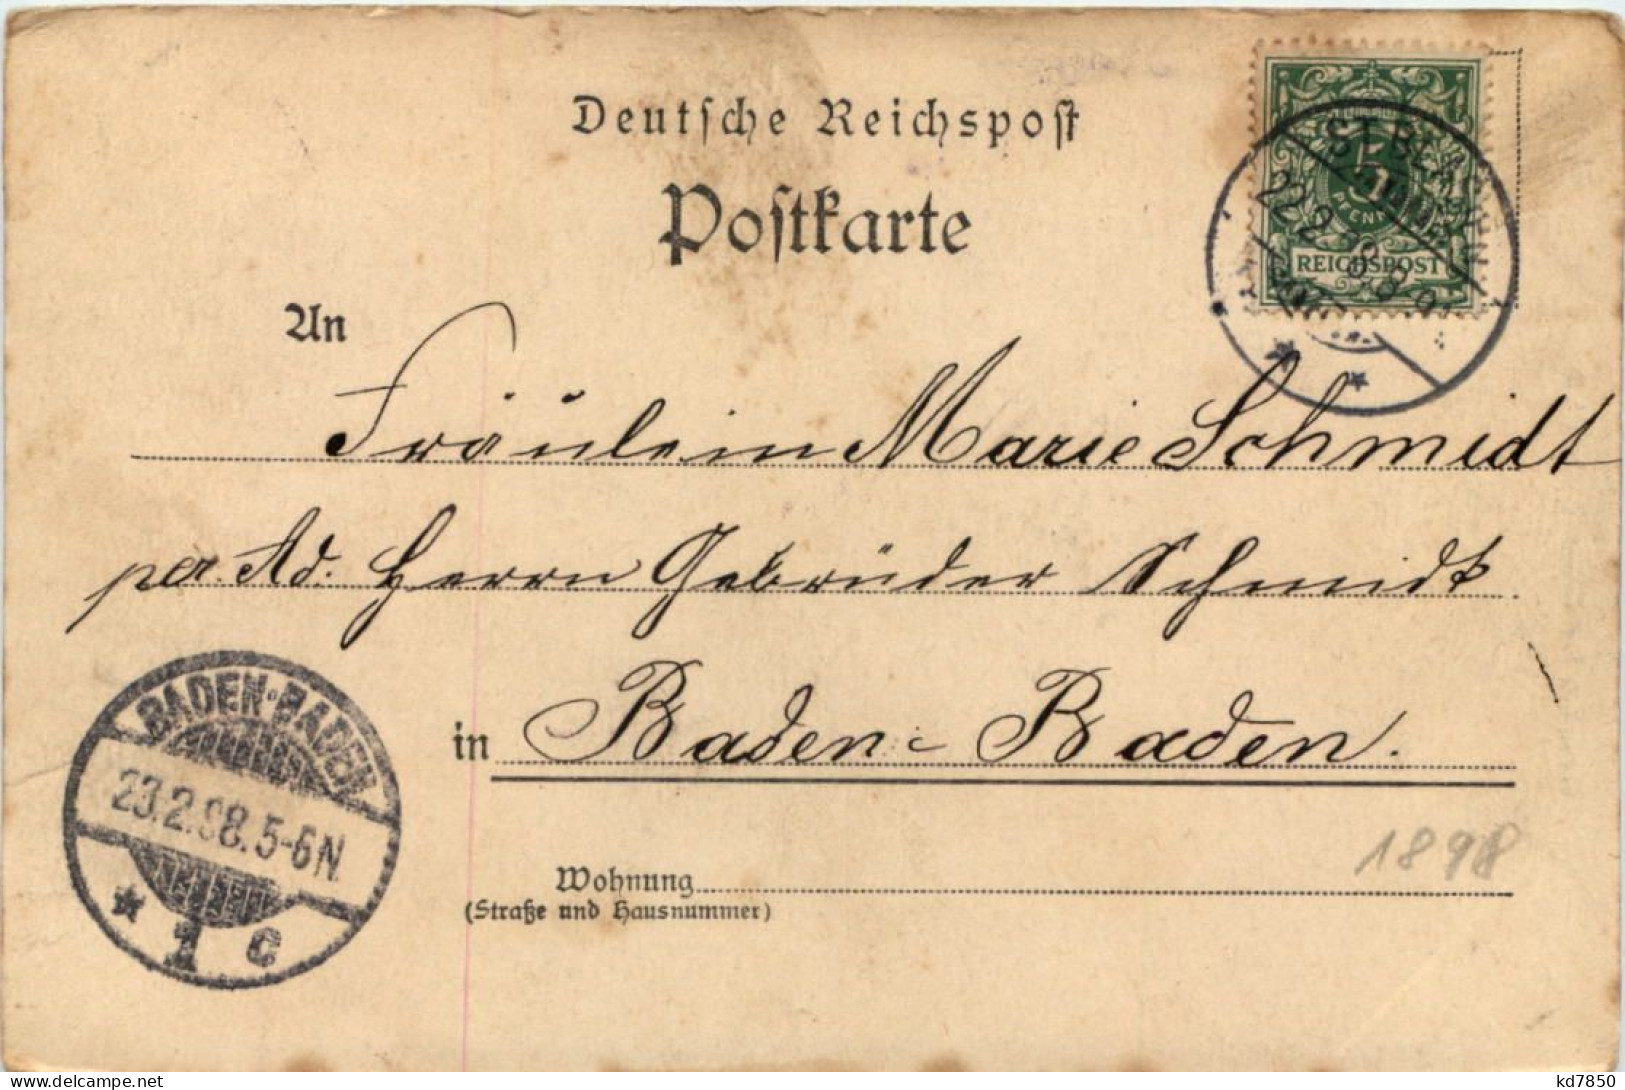 Deutsche Reichspost
Postkarte
5
PFENNIG
REICHSPOST
ST. BLASIEN
22.2.98.
An
Fräulein Marie Schmidt
per Ad. Herrn Gebrüder Schmidt
in Baden-Baden.
BADEN-BADEN
23.2.98.5-6N
1 c
1898
Wohnung
(Straße und Hausnummer)
kd7850